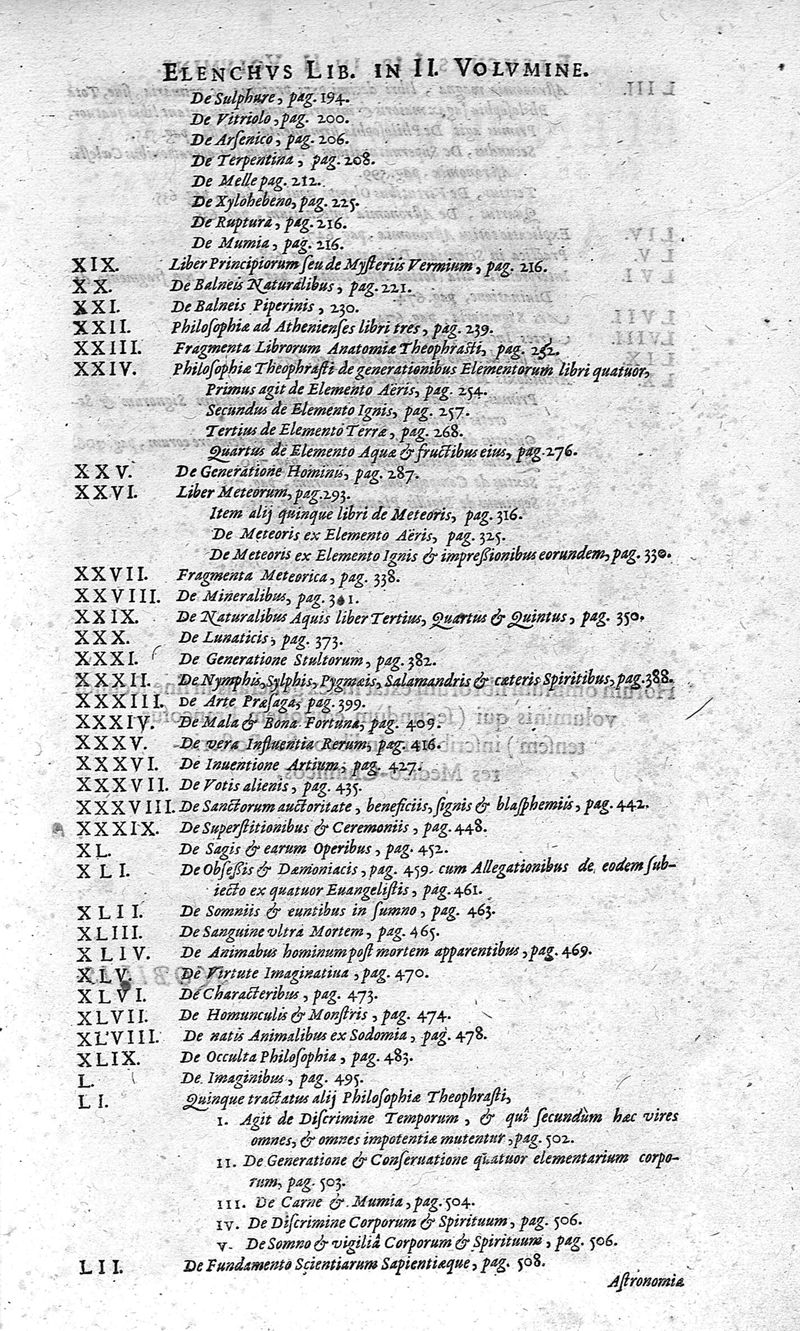 ELENCHVS LIB. IN II. VOLVMINE.
De Sulphure, pag. 194.
De Vitriolo, pag. 200.
De Arſenico, pag. 206.
De Terpentina, pag. 208.
De Melle pag. 212.
De Xylohebeno, pag. 225.
De Ruptura, pag. 216.
De Mumia, pag. 216.
XIX. Liber Principiorum ſeu de Myſteriis Vermium, pag. 216.
XX. De Balneis Naturalibus, pag. 221.
XXI. De Balneis Piperinis, 230.
XXII. Philoſophiæ ad Athenienſes libri tres, pag. 239.
XXIII. Fragmenta Librorum Anatomiæ Theophraſti, pag. 252.
XXIV. Philoſophiæ Theophraſti de generationibus Elementorum libri quatuor,
Primus agit de Elemento Aëris, pag. 254.
Secundus de Elemento Ignis, pag. 257.
Tertius de Elemento Terræ, pag. 268.
Quartus de Elemento Aquæ & fructibus eius, pag. 276.
XXV. De Generatione Hominis, pag. 287.
XXVI. Liber Meteorum, pag. 293.
Item alij quinque libri de Meteoris, pag. 316.
De Meteoris ex Elemento Aëris, pag. 325.
De Meteoris ex Elemento Ignis & impreßionibus eorundem, pag. 330.
XXVII. Fragmenta Meteorica, pag. 338.
XXVIII. De Mineralibus, pag.
XXIX. De Naturalibus Aquis liber Tertius, Quartus & Quintus, pag. 350.
XXX. De Lunaticis, pag. 373.
XXXI. De Generatione Stultorum, pag. 382.
XXXII. De Nymphis, Sylphis, Pygmæis, Salamandris & cæteris Spiritibus, pag. 388.
XXXIII. De Arte Præſaga, pag. 399.
XXXIV. De Mala & Bona Fortuna, pag. 409.
XXXV. De vera Influentia Rerum, pag. 416.
XXXVI. De Inuentione Artium, pag. 427.
XXXVII. De Votis alienis, pag. 435.
XXXVIII. De Sanctorum auctoritate, beneficiis, ſignis & blaſphemiis, pag. 442.
XXXIX. De Superſtitionibus & Ceremoniis, pag. 448.
XL. De Sagis & earum Operibus, pag. 452.
XLI. De Obſeßis & Dæmoniacis, pag. 459. cum Allegationibus de eodem ſub-
iecto ex quatuor Euangeliſtis, pag. 461.
XLII. De Somniis & euntibus in ſumno, pag. 463.
XLIII. De Sanguine vltra Mortem, pag. 465.
XLIV. De Animabus hominum poſt mortem apparentibus, pag. 469.
XLV. De Virtute Imaginatiua, pag. 470.
XLVI. De Characteribus, pag. 473.
XLVII. De Homunculis & Monſtris, pag. 474.
XLVIII. De natis Animalibus ex Sodomia, pag. 478.
XLIX. De Occulta Philoſophia, pag. 483.
L. De Imaginibus, pag. 495.
LI. Quinque tractatus alij Philoſophiæ Theophraſti,
I. Agit de Diſcrimine Temporum, & quî ſecundùm hæc vires
omnes, & omnes impotentiæ mutentur, pag. 502.
II. De Generatione & Conſeruatione quatuor elementarium corpo-
rum, pag. 503.
III. De Carne & Mumia, pag. 504.
IV. De Diſcrimine Corporum & Spirituum, pag. 506.
V. De Somno & vigiliâ Corporum & Spirituum, pag. 506.
LII. De Fundamento Scientiarum Sapientiæque, pag. 508.
Aſtronomia